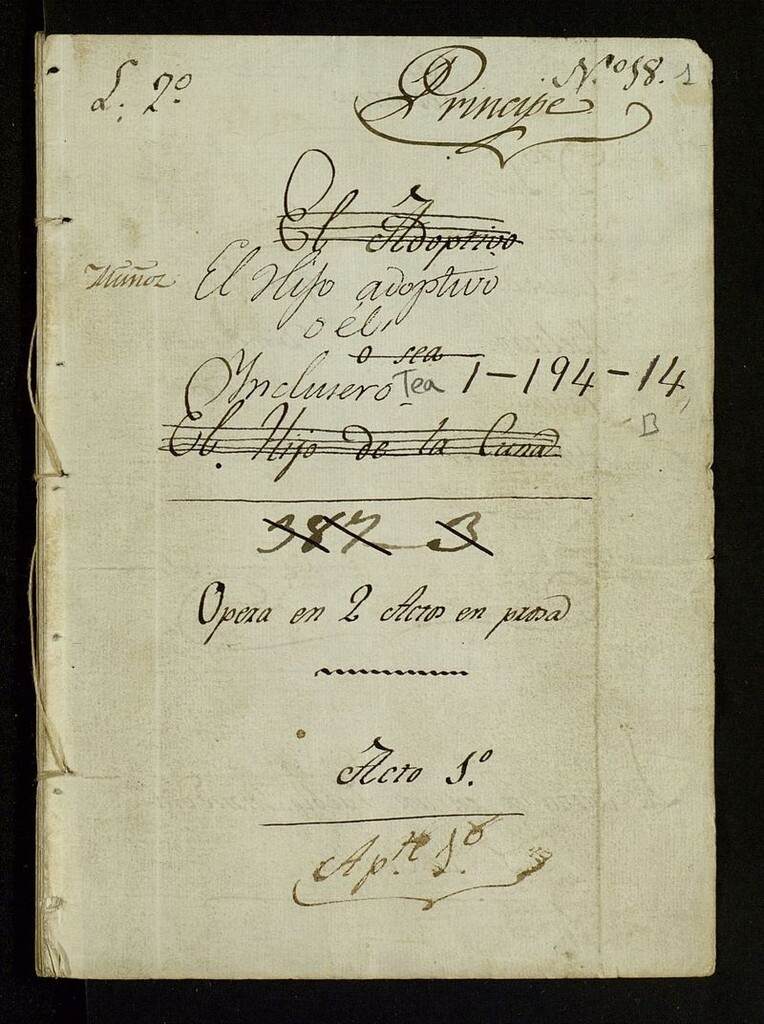 L. 2º
Nº 18. 1
Principe
El Adoptivo
Muñoz
El Hijo adoptivo
o el
o sea
Inclusero Tea 1-194-14
B
El Hijo de la Cuna
387 3
Opera en 2 Actos en prosa
Acto 1º
Apte 1º